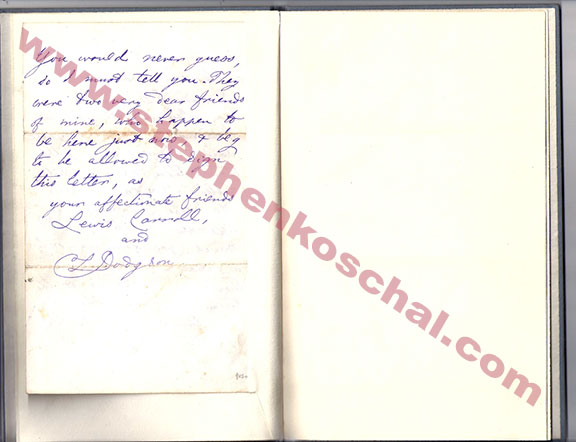 You would never guess,
so I must tell you. They
were two very dear friends
of mine, who happen to
be here just now & beg
to be allowed to sign
this letter, as
your affectionate friends
Lewis Carroll,
and
CL Dodgson
www.stephenkoschal.com